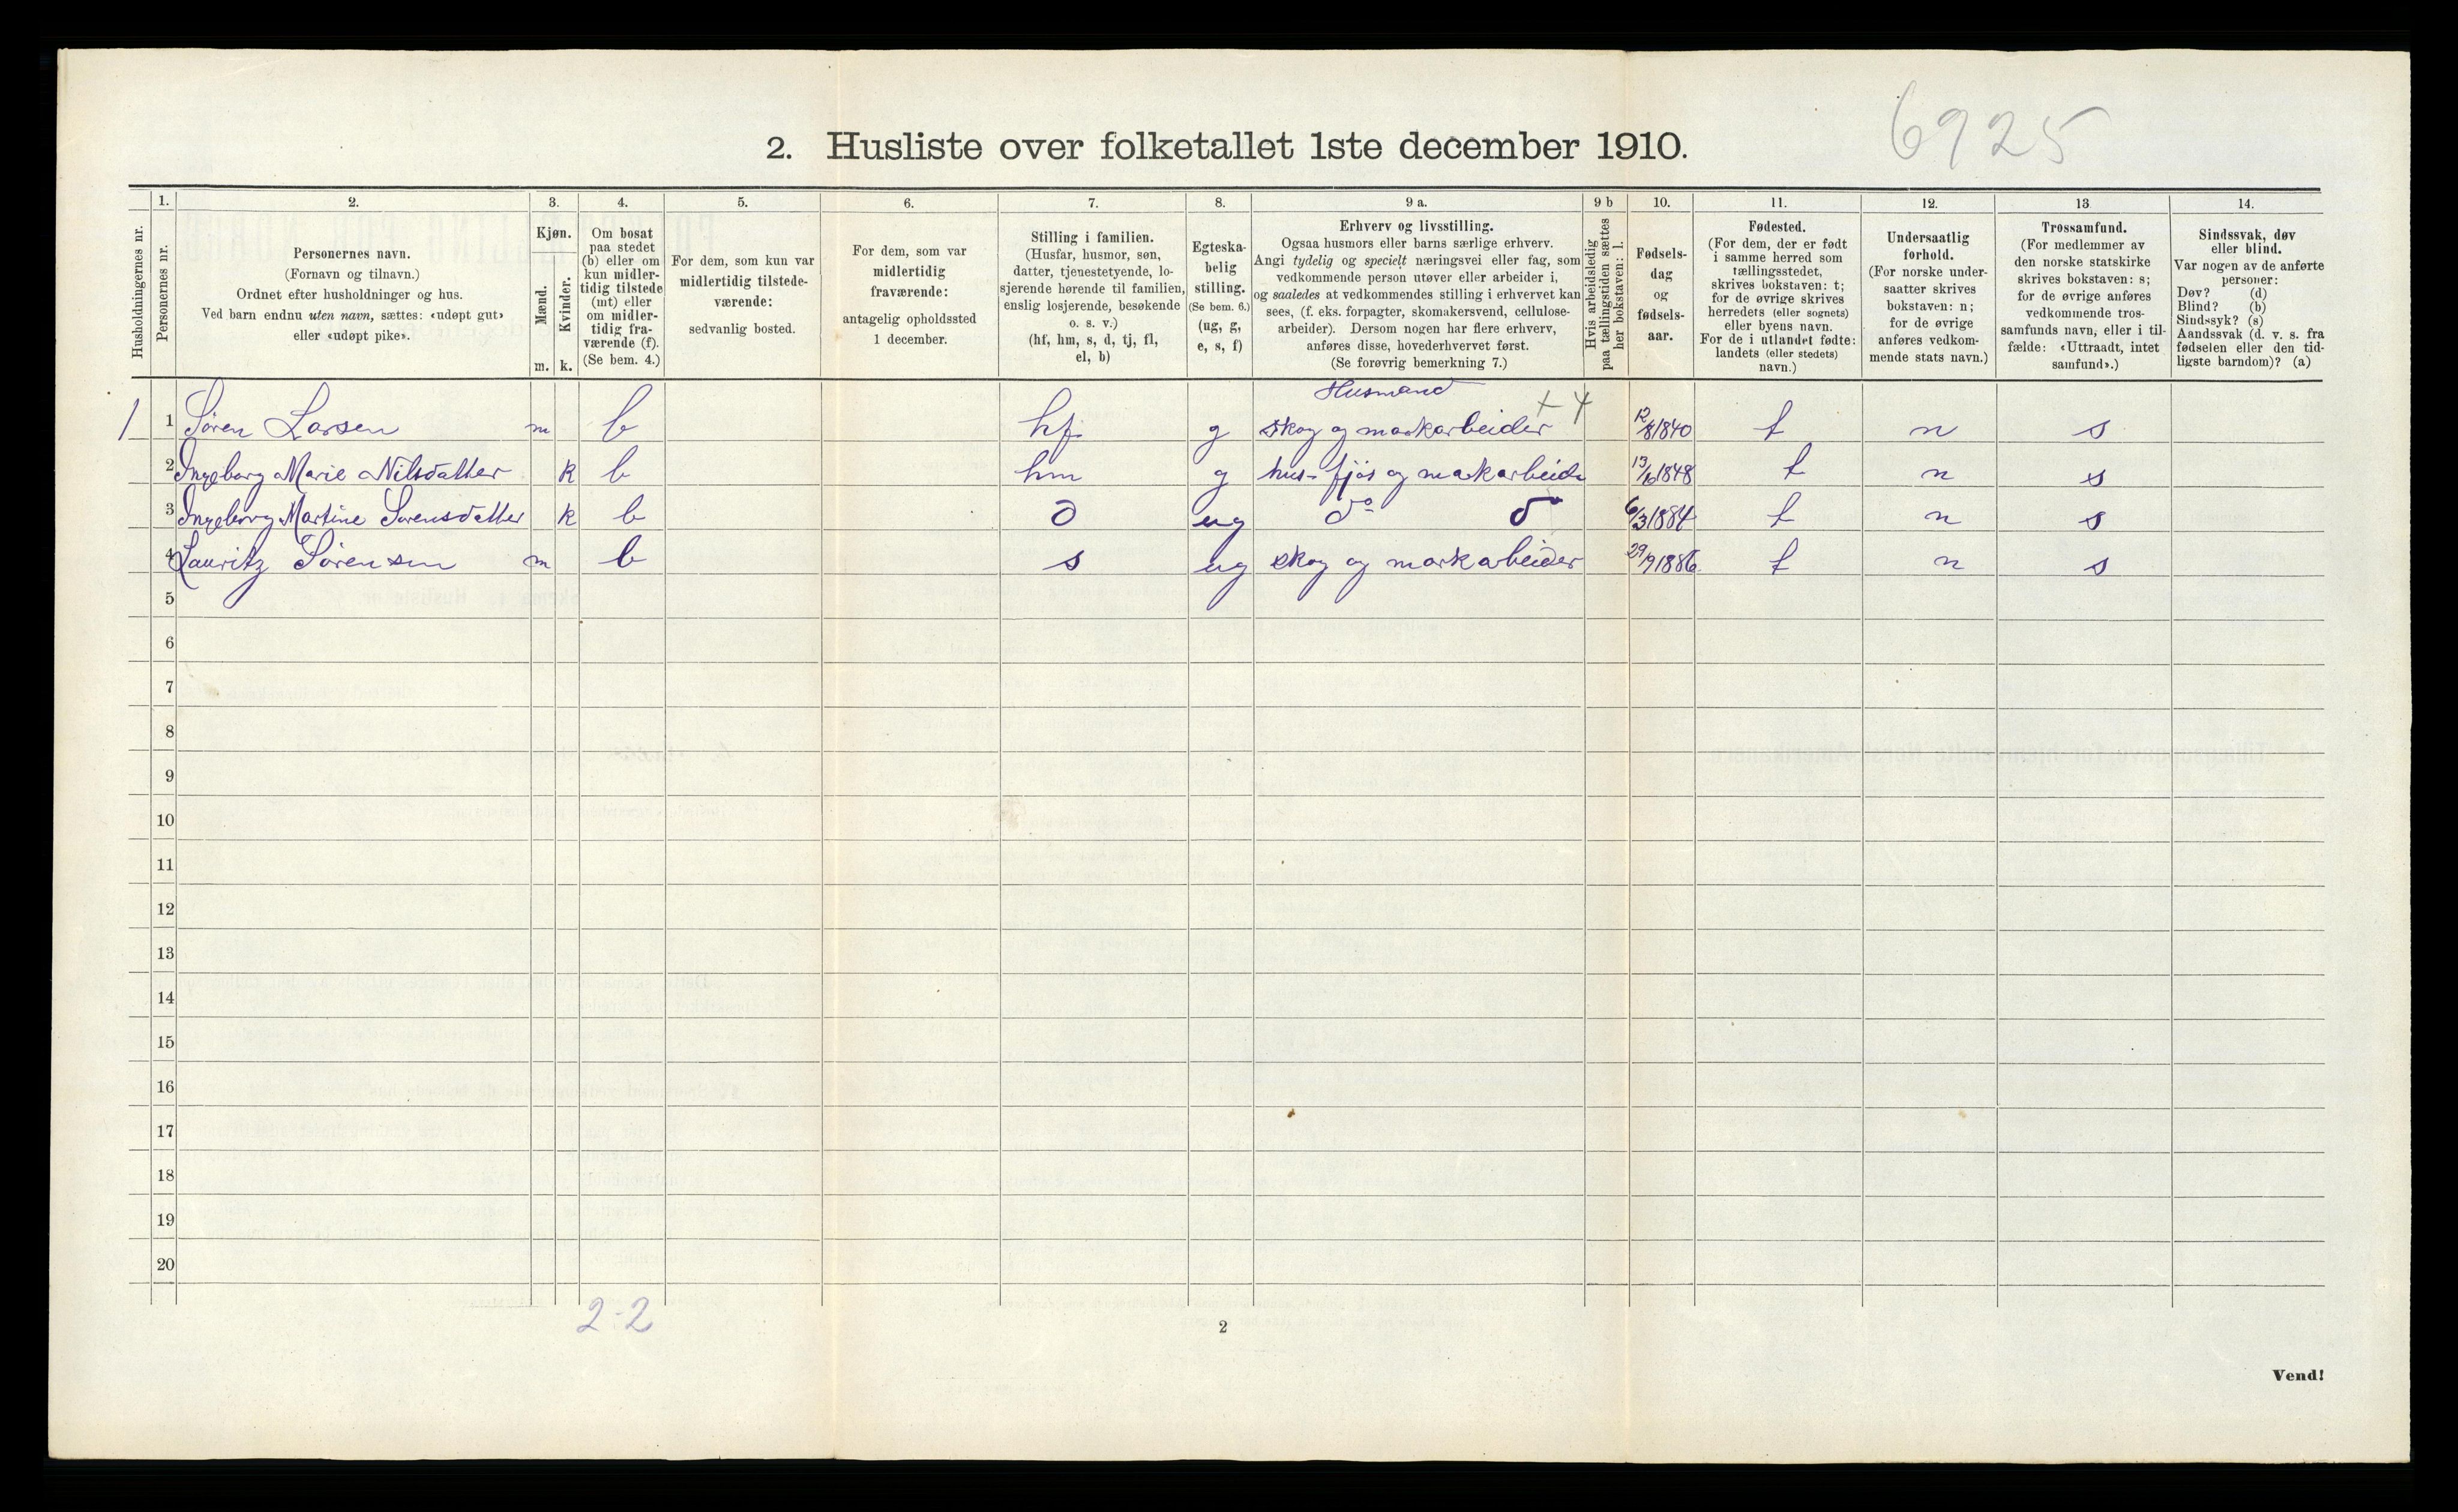 6925
2. Husliste over folketallet 1ste december 1910.
Husholdningernes nr.
1.
Personernes nr.
2.
Personernes navn.
(Fornavn og tilnavn.)
Ordnet efter husholdninger og hus.
Ved barn endnu uten navn, sættes: «udøpt gut»
eller «udøpt pike».
3.
Kjøn.
Mænd.
Kvinder.
m. k.
4.
Om bosat
paa stedet
(b) eller om
kun midler-
tidig tilstede
(mt) eller
om midler-
tidig fra-
værende (f).
(Se bem. 4.)
5.
For dem, som kun var
midlertidig tilstede-
værende:
sedvanlig bosted.
6.
For dem, som var
midlertidig
fraværende:
antagelig opholdssted
1 december.
7.
Stilling i familien.
(Husfar, husmor, søn,
datter, tjenestetyende, lo-
sjerende hørende til familien,
enslig losjerende, besøkende
o. s. v.)
(hf, hm, s, d, tj, fl,
el, b)
8.
Egteska-
belig
stilling.
(Se bem. 6.)
(ug, g,
e, s, f)
9 a.
Erhverv og livsstilling.
Ogsaa husmors eller barns særlige erhverv.
Angi tydelig og specielt næringsvei eller fag, som
vedkommende person utøver eller arbeider i,
og saaledes at vedkommendes stilling i erhvervet kan
sees, (f. eks. forpagter, skomakersvend, cellulose-
arbeider). Dersom nogen har flere erhverv,
anføres disse, hovederhvervet først.
(Se forøvrig bemerkning 7.)
9 b
Hvis arbeidsledig
paa tællingstiden sættes
her bokstaven: l.
10.
Fødsels-
dag
og
fødsels-
aar.
11.
Fødested.
(For dem, der er født
i samme herred som
tællingsstedet,
skrives bokstaven: t;
for de øvrige skrives
herredets (eller sognets)
eller byens navn.
For de i utlandet fødte:
landets (eller stedets)
navn.)
12.
Undersaatlig
forhold.
(For norske under-
saatter skrives
bokstaven: n;
for de øvrige
anføres vedkom-
mende stats navn.)
13
Trossamfund.
(For medlemmer av
den norske statskirke
skrives bokstaven: s;
for de øvrige anføres
vedkommende tros-
samfunds navn, eller i til-
fælde: «Uttraadt, intet
samfund».)
14.
Sindssvak, døv
eller blind.
Var nogen av de anførte
personer:
Døv? (d)
Blind? (b)
Sindssyk? (s)
Aandssvak (d. v. s. fra
fødselen eller den tid-
ligste barndom)? (a)
Husmand
1 1 Søren Larsen m b hf. g skog og markarbeider + 4 12/8 1840 t n s
2 Ingeborg Marie Nilsdatter k b hm g hus- fjøs og markarbeide 13/10 1848 t n s
3 Ingeborg Martine Sørensdatter k b d ug do do 6/3 1884 t n s
4 Lauritz Sørensen m b s ug skog og markarbeider 29/9 1886 t n s
5
6
7
8
9
10
11
12
13
14
15
16
17
18
19
20
2-2
2
Vend!